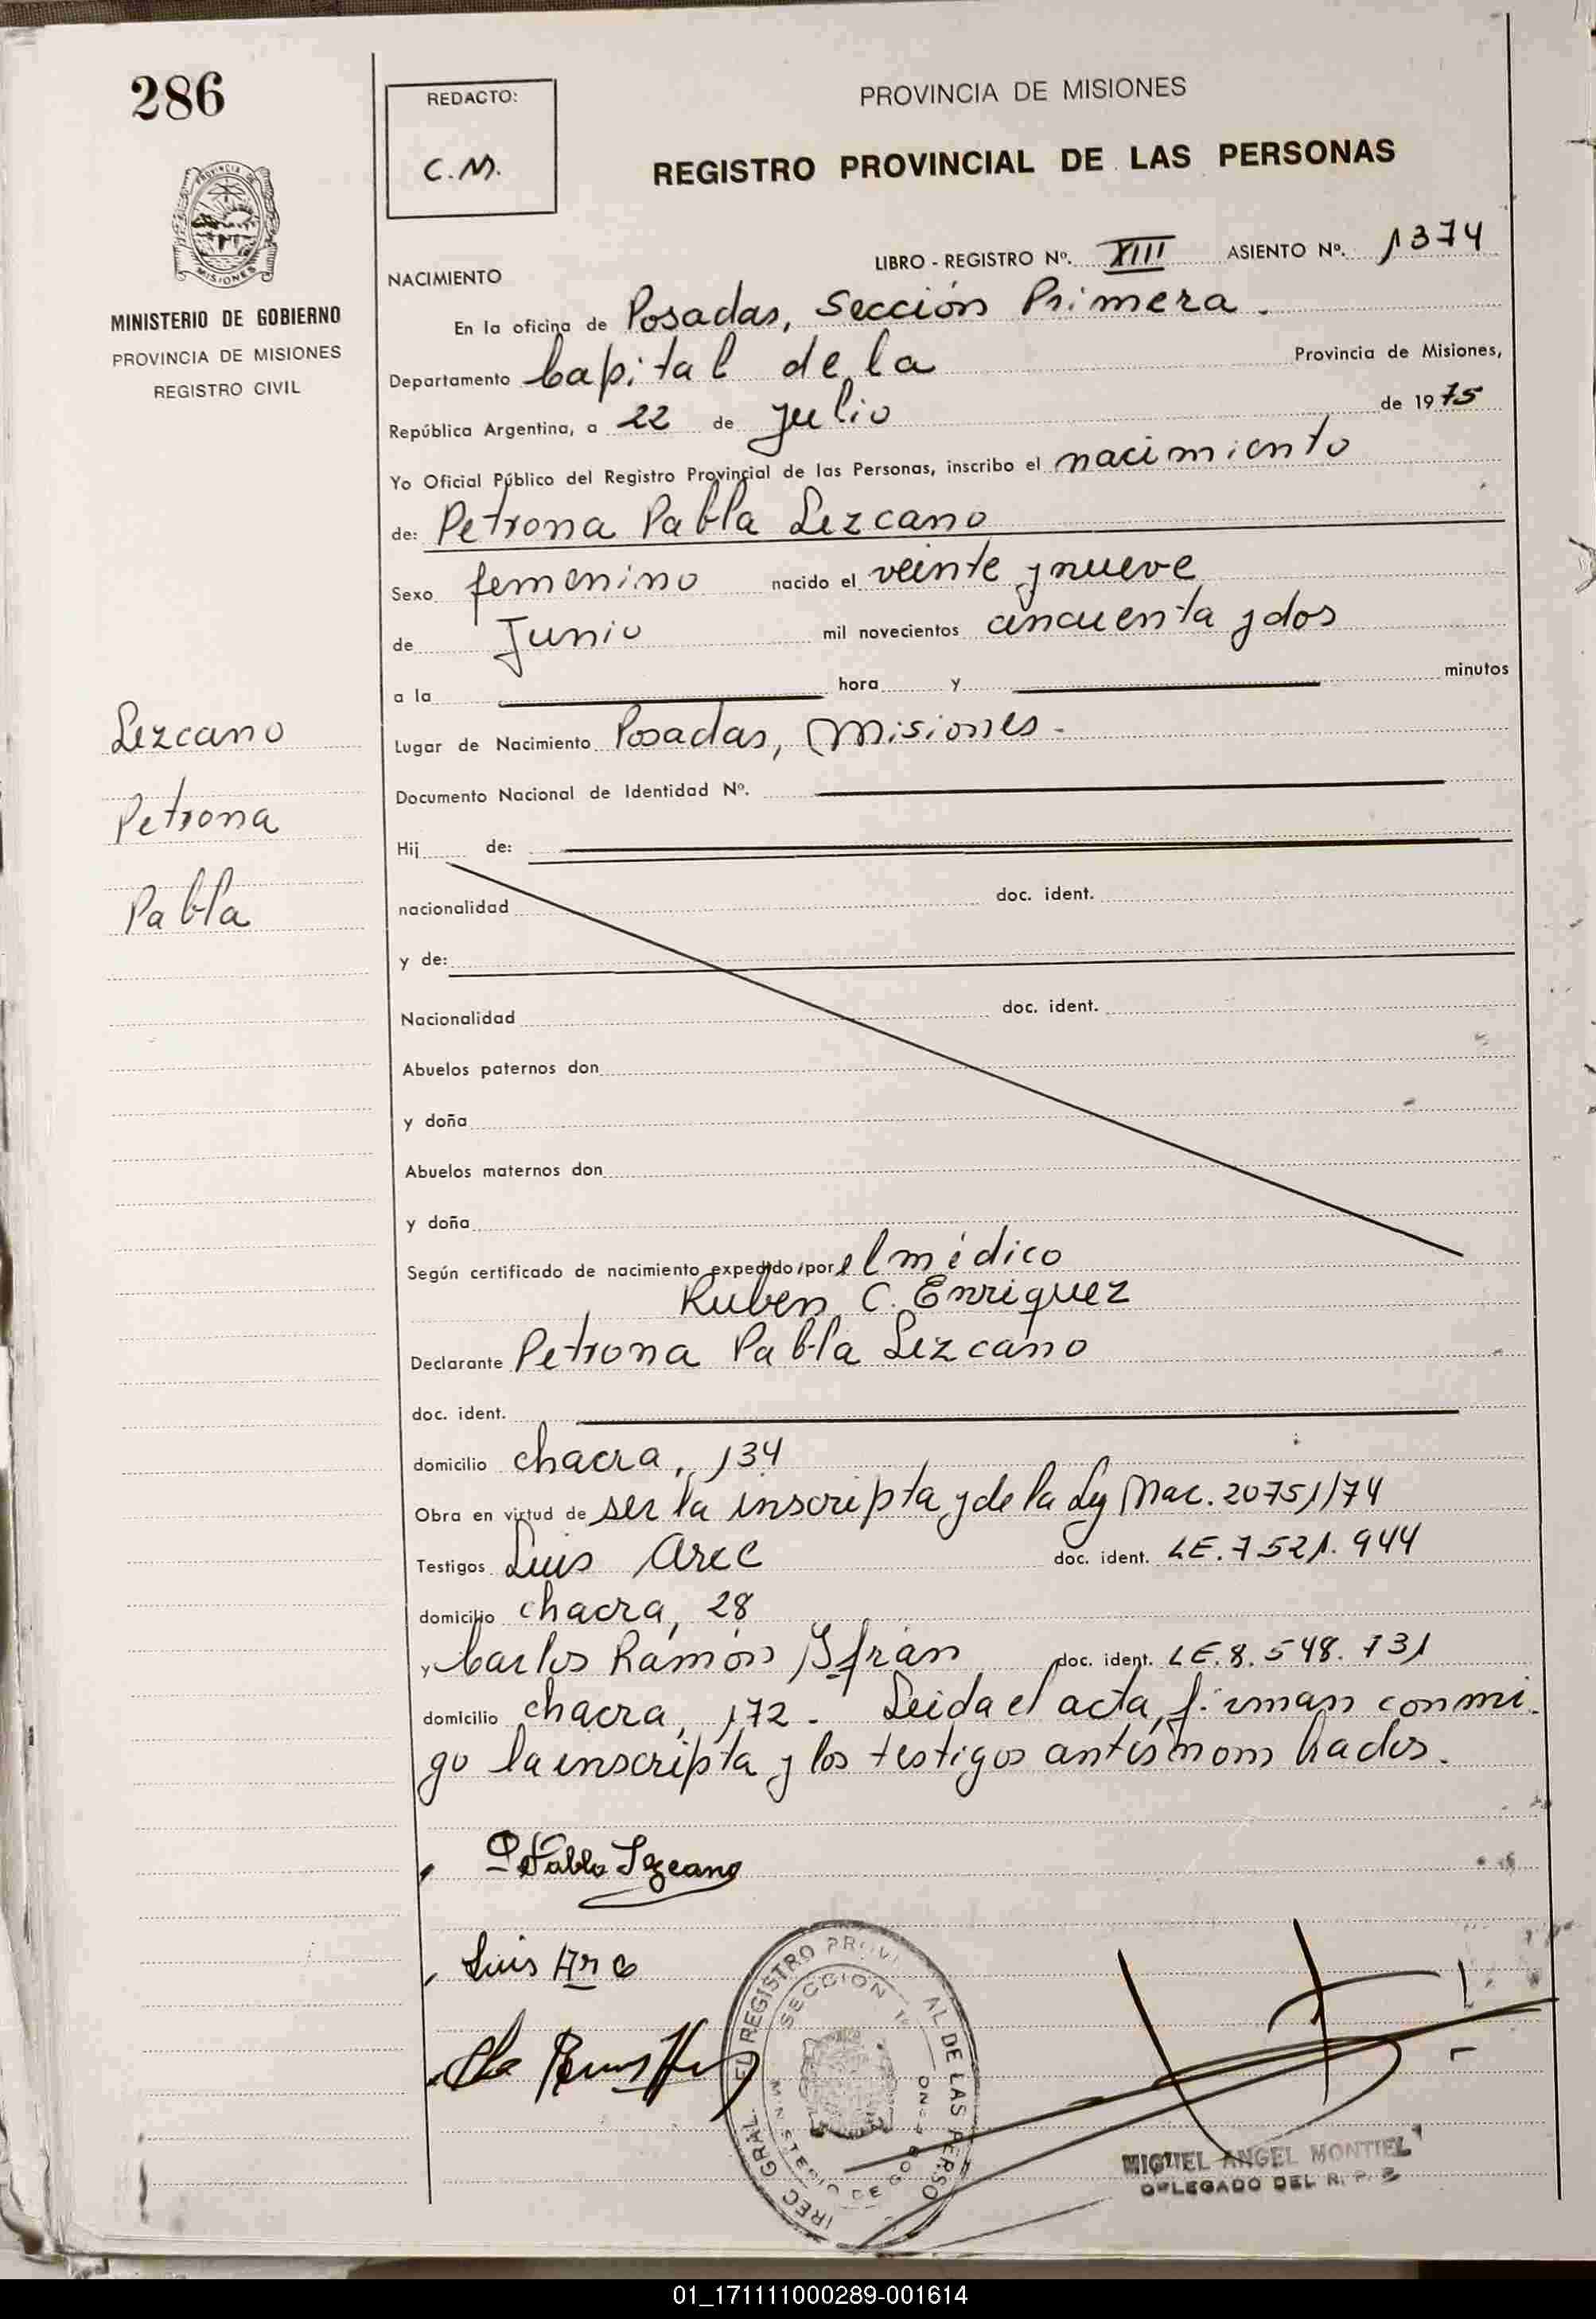 286
REDACTO:
C.M.
PROVINCIA DE MISIONES
REGISTRO PROVINCIAL DE LAS PERSONAS
LIBRO - REGISTRO Nº. XIII ASIENTO Nº. 1374
NACIMIENTO
MINISTERIO DE GOBIERNO
PROVINCIA DE MISIONES
REGISTRO CIVIL
En la oficina de Posadas, Sección Primera.
Departamento Capital de la Provincia de Misiones,
República Argentina, a 22 de Julio de 1975
Yo Oficial Público del Registro Provincial de las Personas, inscribo el nacimiento
de: Petrona Pabla Lezcano
Sexo femenino nacido el veinte y nueve
de Junio mil novecientos cincuenta y dos
a la hora y minutos
Lugar de Nacimiento Posadas, Misiones.
Documento Nacional de Identidad Nº.
Hij de:
nacionalidad doc. ident.
y de:
Nacionalidad doc. ident.
Abuelos paternos don
y doña
Abuelos maternos don
y doña
Lezcano
Petrona
Pabla
Según certificado de nacimiento expedido por el médico
Ruben C. Enriquez
Declarante Petrona Pabla Lezcano
doc. ident.
domicilio chacra, 134
Obra en virtud de ser la inscripta y de la Ley Nac. 20751/74
Testigos Luis Arce doc. ident. LE. 7521.944
domicilio chacra, 28
y Carlos Ramón Yfran doc. ident. LE. 8.548.731
domicilio chacra, 172. Leida el acta, firman conmi
go la inscripta y los testigos antesnombrados.
P Pabla Lezcano
Luis Arce
SECCION 1ª
MINISTERIO DE GOB
MIGUEL ANGEL MONTIEL
DELEGADO DEL R. P. P.
01_171111000289-001614